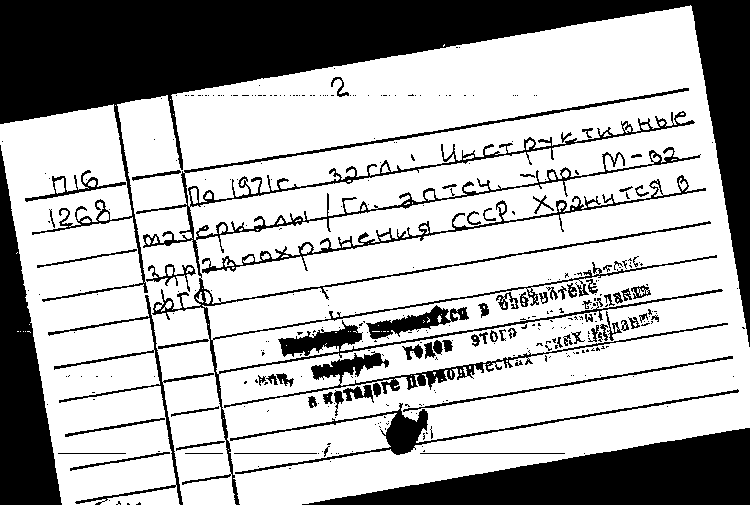 2
П16
1268
По 1971г. загл.: Инструктивные
материалы / Гл. аптеч. упр. М-ва
здравоохранения СССР. Хранится в
ФГФ.
имеющихся в библиотеке
номеров, годов этого издания
в каталоге периодических изданий